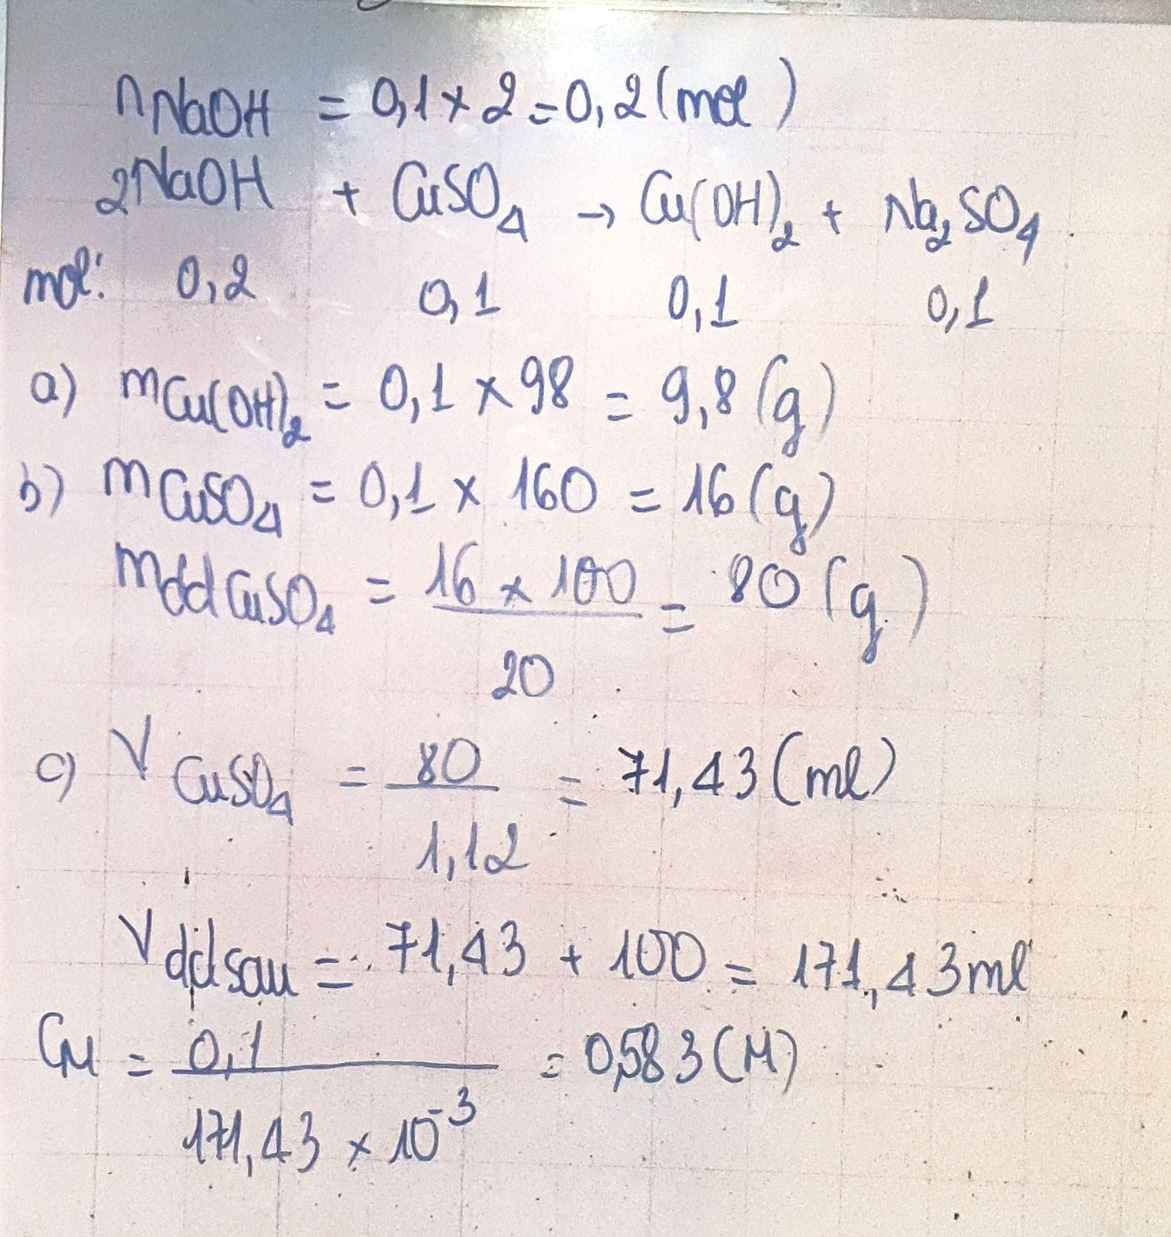 nNaOH = 0,1 × 2 = 0,2 (mol)
2NaOH + CuSO₄ → Cu(OH)₂ + Na₂SO₄
mol: 0,2 0,1 0,1 0,1
a) mCu(OH)₂ = 0,1 × 98 = 9,8 (g)
b) mCuSO₄ = 0,1 × 160 = 16 (g)
mddCuSO₄ = 16 × 100 / 20 = 80 (g)
c) V CuSO₄ = 80 / 1,12 = 71,43 (ml)
Vddsau = 71,43 + 100 = 171,43 ml
CM = 0,1 / 171,43 × 10⁻³ = 0,583 (M)